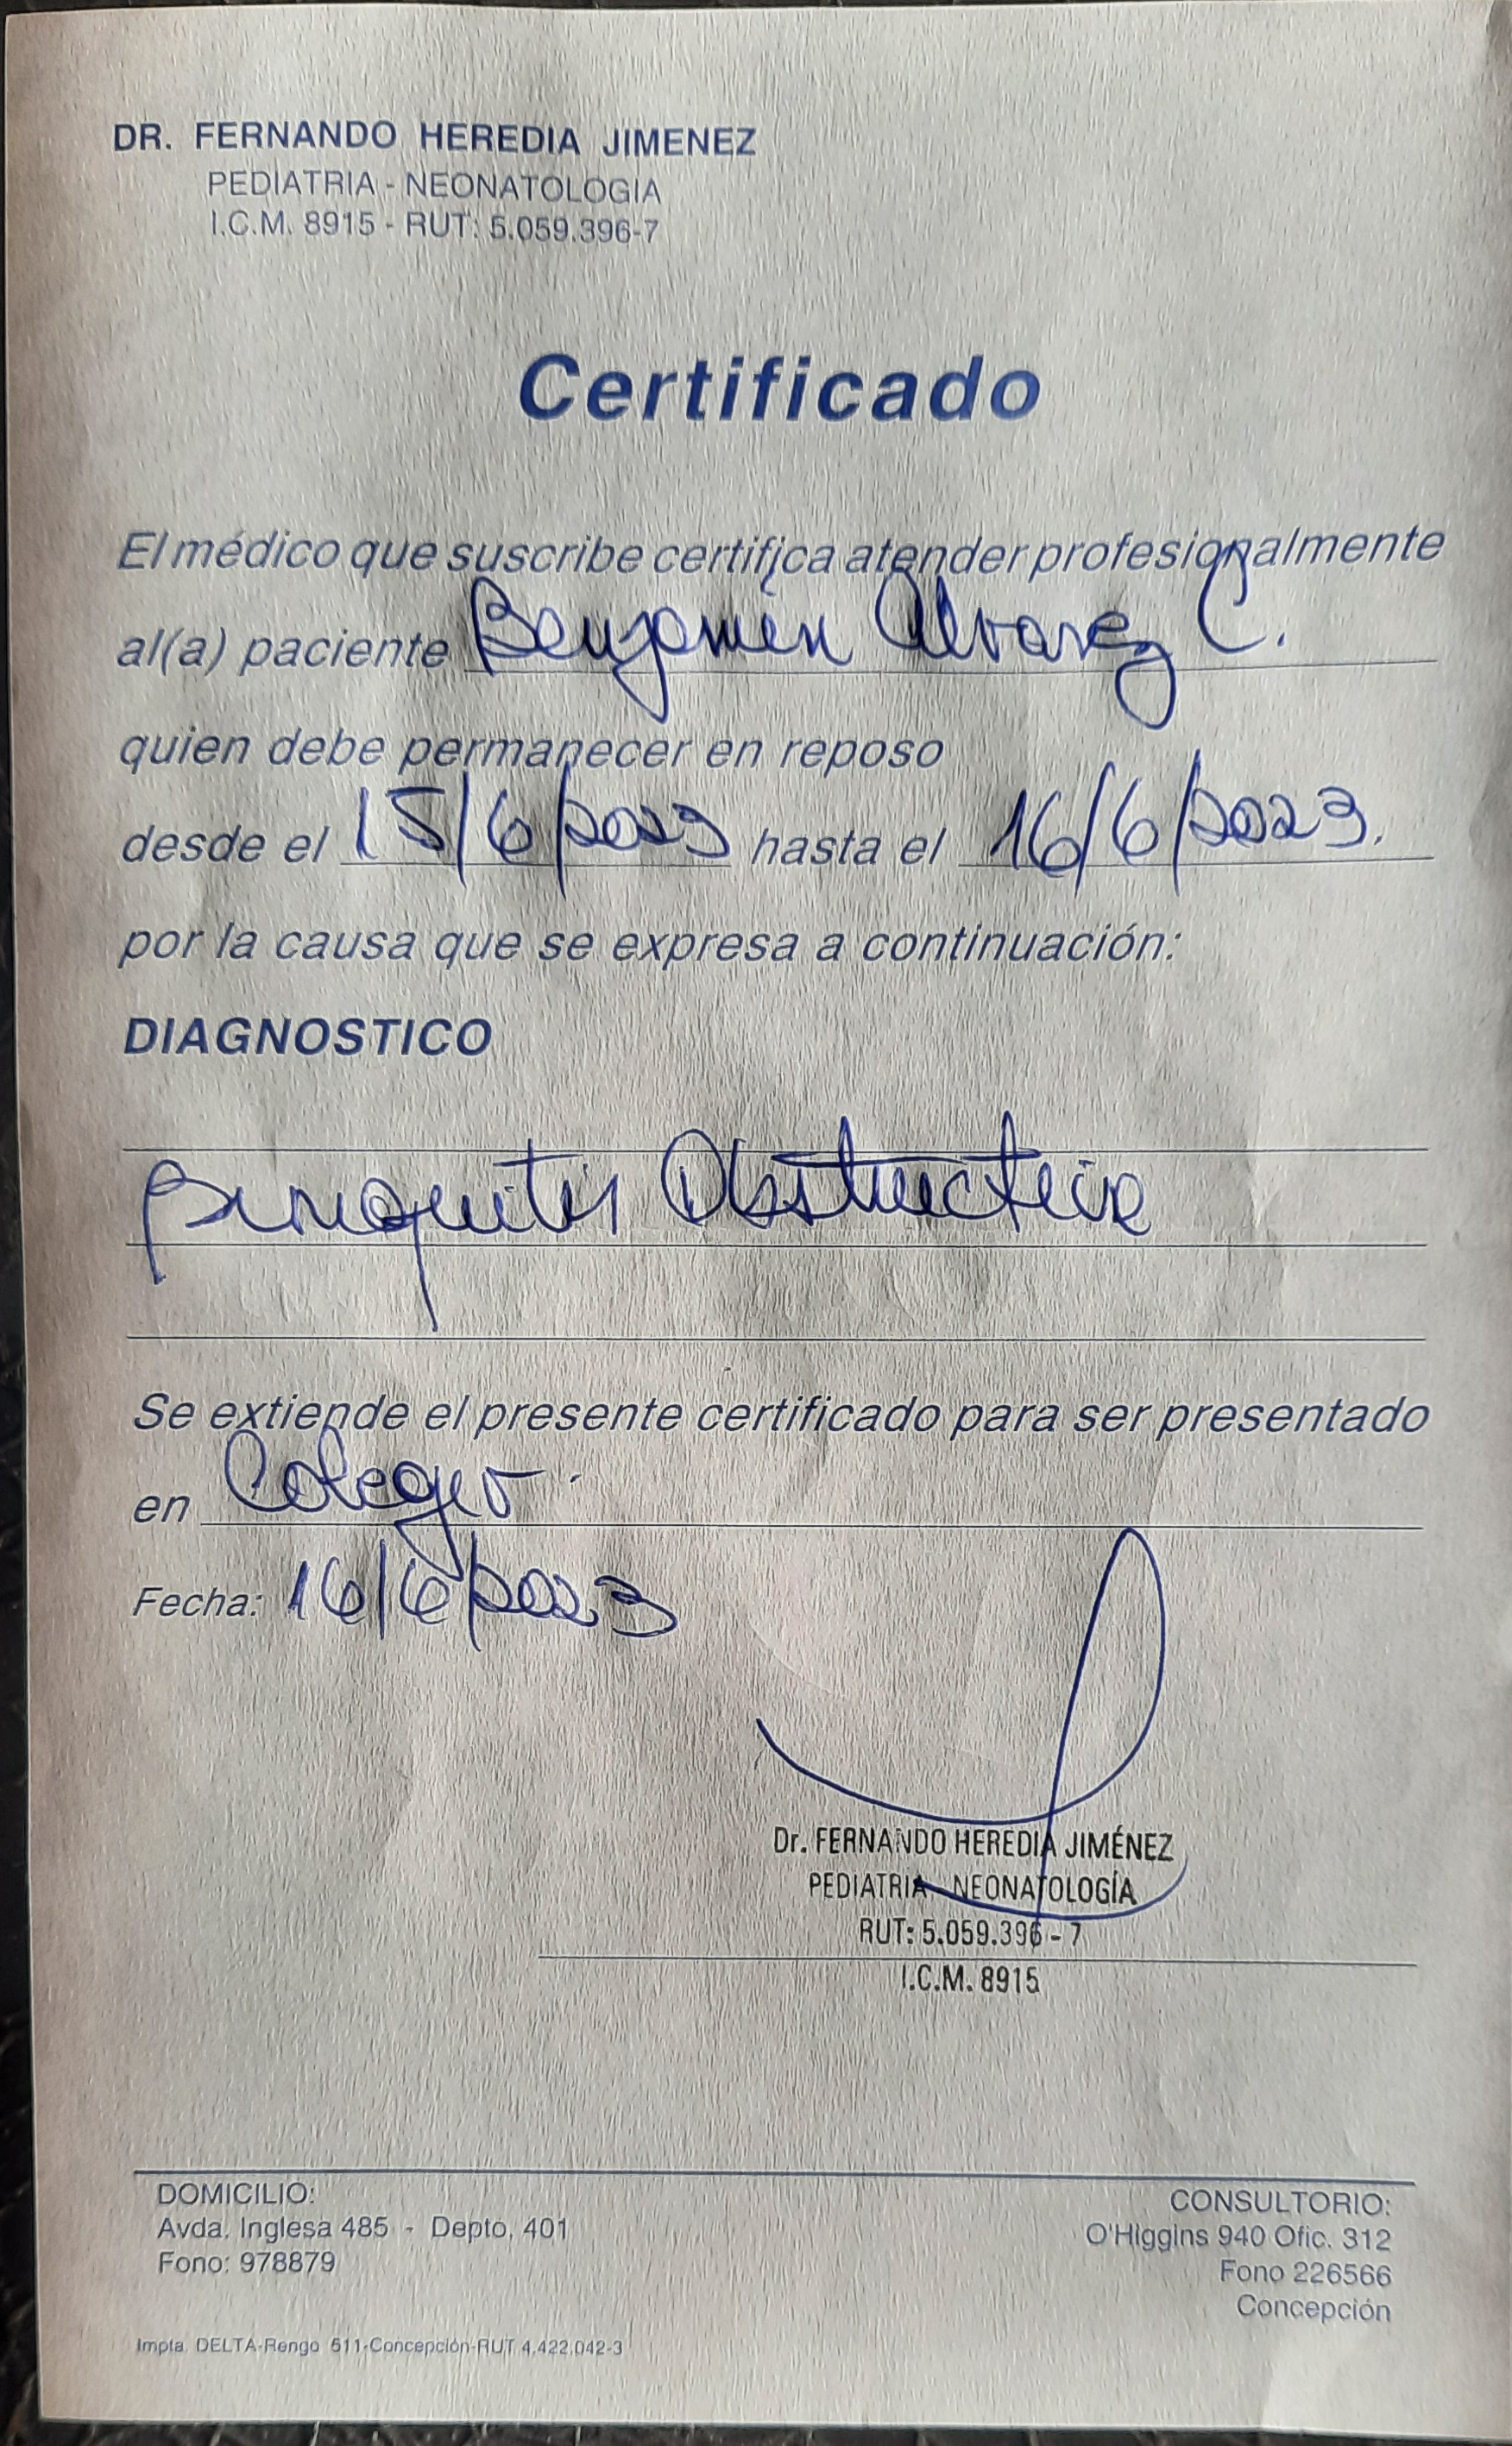 DR. FERNANDO HEREDIA JIMENEZ
PEDIATRIA - NEONATOLOGIA
I.C.M. 8915 - RUT: 5.059.396-7
Certificado
El médico que suscribe certifica atender profesionalmente
al(a) paciente Benjamín Alvarez C.
quien debe permanecer en reposo
desde el 15/6/2023 hasta el 16/6/2023.
por la causa que se expresa a continuación:
DIAGNOSTICO
Bronquitis Obstructiva
Se extiende el presente certificado para ser presentado
en Colegio.
Fecha: 16/6/2023
Dr. FERNANDO HEREDIA JIMÉNEZ
PEDIATRIA - NEONATOLOGÍA
RUT: 5.059.396 - 7
I.C.M. 8915
DOMICILIO:
Avda. Inglesa 485 - Depto. 401
Fono: 978879
CONSULTORIO:
O'Higgins 940 Ofic. 312
Fono 226566
Concepción
Impta. DELTA-Rengo 511-Concepción-RUT 4.422.042-3